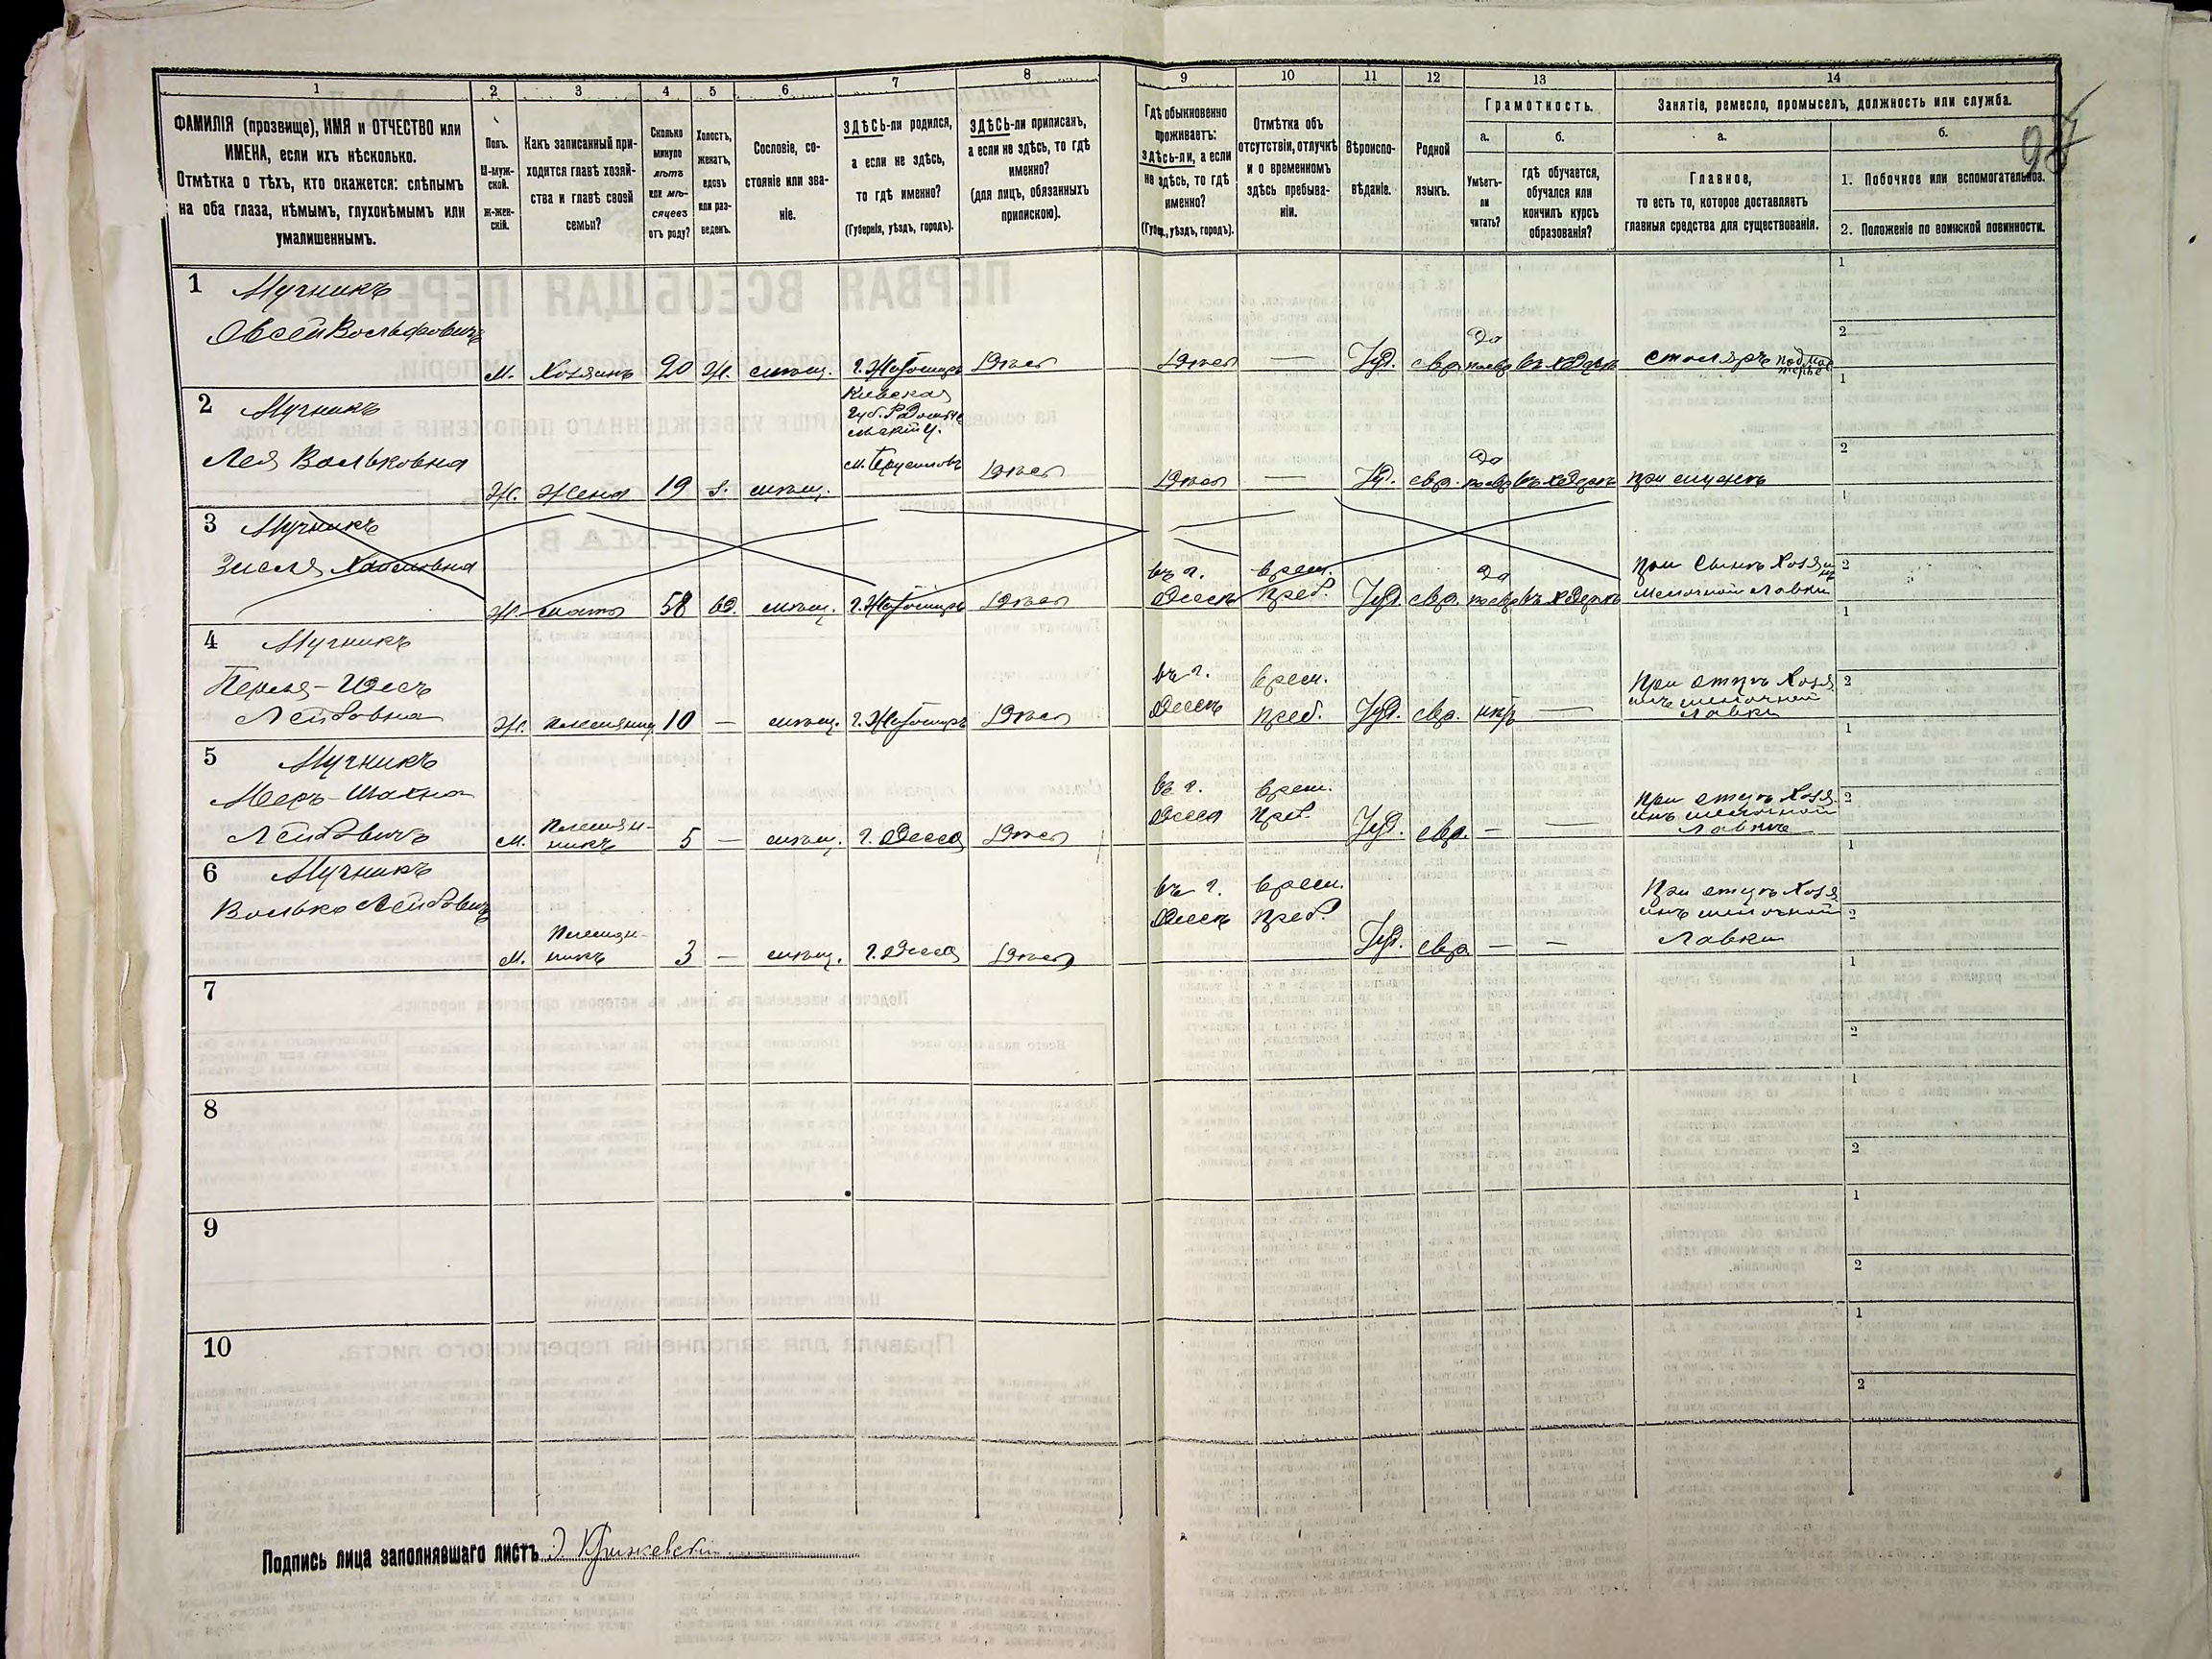 1
2
3
4
5
6
7
8
9
10
11
12
13
14
ФАМИЛІЯ (прозвище), ИМЯ и ОТЧЕСТВО или
ИМЕНА, если ихъ нѣсколько.
Отмѣтка о тѣхъ, кто окажется: слѣпымъ
на оба глаза, нѣмымъ, глухонѣмымъ или
умалишеннымъ.
Полъ.
М-муж-
ской.
ж-жен-
скій.
Какъ записанный при-
ходится главѣ хозяй-
ства и главѣ своей
семьи?
Сколько
минуло
лѣтъ
или мѣ-
сяцевъ
отъ роду?
Холостъ,
женатъ,
вдовъ
или раз-
веденъ.
Сословіе, со-
стояніе или зва-
ніе.
ЗДѢСЬ-ли родился,
а если не здѣсь,
то гдѣ именно?
(Губернія, уѣздъ, городъ).
ЗДѢСЬ-ли приписанъ,
а если не здѣсь, то гдѣ
именно?
(для лицъ, обязанныхъ
припискою).
Гдѣ обыкновенно
проживаетъ:
здѣсь-ли, а если
не здѣсь, то гдѣ
именно?
(Губер., уѣздъ, городъ).
Отмѣтка объ
отсутствіи, отлучкѣ
и о временномъ
здѣсь пребыва-
ніи.
Вѣроиспо-
вѣданіе.
Родной
языкъ.
Грамотность.
а.
Умѣетъ-
ли
читать?
б.
гдѣ обучается,
обучался или
кончилъ курсъ
образованія?
Занятіе, ремесло, промыселъ, должность или служба.
а.
Главное,
то есть то, которое доставляетъ
главныя средства для существованія.
б.
1. Побочное или вспомогательное.
2. Положеніе по воинской повинности.
1 Мучникъ
Овсей Вольфовичъ
М. Хозяинъ 20 Ж. мѣщ. г. Житомиръ Здѣсь
Здѣсь — Іуд. евр. Да по евр. въ хедерѣ столяръ
1
2
2 Мучникъ
Лея Вольковна
Ж. Жена 19 з. мѣщ.
Кіевская
губ. Радомы
м. Брусиловъ
Здѣсь
Здѣсь — Іуд. евр. Да по евр. въ хедерѣ при мужѣ
1
2
3 Мучникъ
Зисля
Ж. мать 58 вд. мѣщ. г. Житомиръ Здѣсь
въ г.
Одессѣ
врем.
преб.
Іуд. евр. Да по евр. въ хедерѣ
при сынѣ Хозяинѣ
мелочной лавки
1
2
4 Мучникъ
Лейбовна
Ж. племянница 10 — мѣщ. г. Житомиръ Здѣсь
въ г.
Одессѣ
врем.
преб.
Іуд. евр. нѣтъ —
При отцѣ Хозя
инѣ мелочной
лавки
1
2
5 Мучникъ
Мееръ-Шахна
Лейбовичъ
М. Племян-
никъ 5 — мѣщ. г. Одесса Здѣсь
въ г.
Одесса
врем.
преб.
Іуд. евр. — —
При отцѣ Хозя
инѣ мелочной
лавки
1
2
6 Мучникъ
Волько Лейбовичъ
М. Племян-
никъ 3 — мѣщ. г. Одесса Здѣсь
въ г.
Одессѣ
врем.
преб.
Іуд. евр. — —
При отцѣ Хозя
инѣ мелочной
лавки
1
2
7
1
2
8
1
2
9
1
2
10
1
2
Подпись лица заполнявшаго листъ